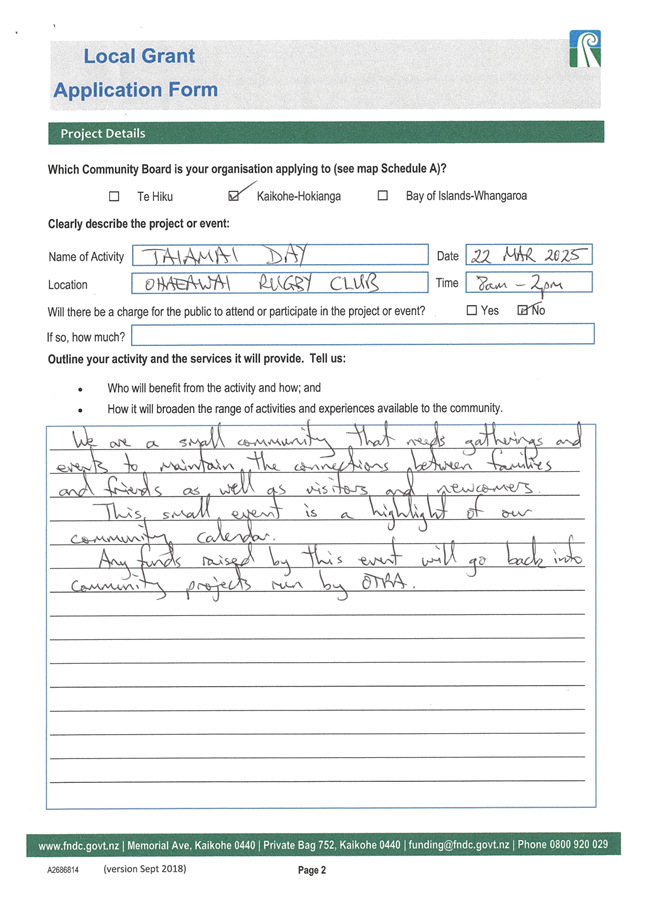 Local Grant
Application Form
Project Details
Which Community Board is your organisation applying to (see map Schedule A)?
☐ Te Hiku ☑ Kaikohe-Hokianga ☐ Bay of Islands-Whangaroa
Clearly describe the project or event:
Name of Activity TAIAMAI DAY Date 22 MAR 2025
Location OHAEAWAI RUGBY CLUB Time 8am - 2pm
Will there be a charge for the public to attend or participate in the project or event? ☐ Yes ☑ No
If so, how much?
Outline your activity and the services it will provide. Tell us:
• Who will benefit from the activity and how; and
• How it will broaden the range of activities and experiences available to the community.
We are a small community that needs gatherings and
events to maintain the connections between families
and friends as well as visitors and newcomers.
This small event is a highlight of our
community calendar.
Any funds raised by this event will go back into
community projects run by OTRA.
www.fndc.govt.nz | Memorial Ave, Kaikohe 0440 | Private Bag 752, Kaikohe 0440 | funding@fndc.govt.nz | Phone 0800 920 029
A2686814 (version Sept 2018) Page 2